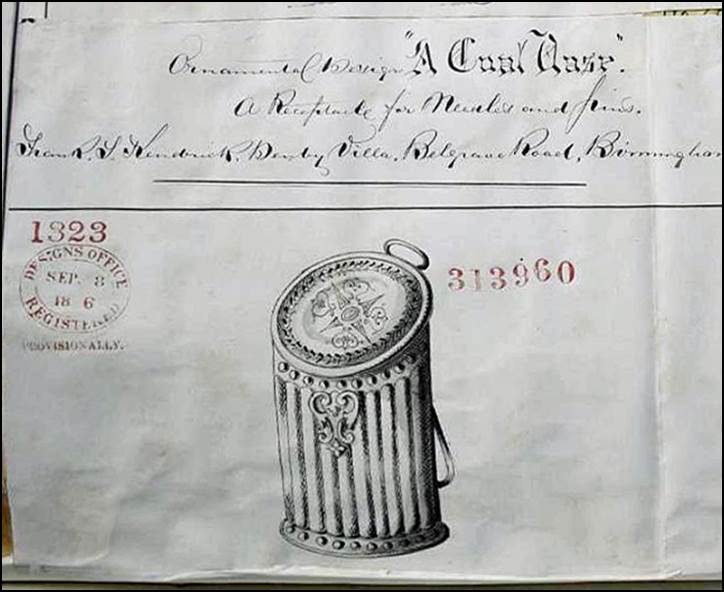 Ornamental Design "A Coal Vase".
A Receptacle for Needles and Pins.
Frank. J. Kendrick. Derby Villa. Belgrave Road, Birmingham
1323
DESIGNS OFFICE
SEP. 8
18 6
REGISTERED
PROVISIONALLY.
313960